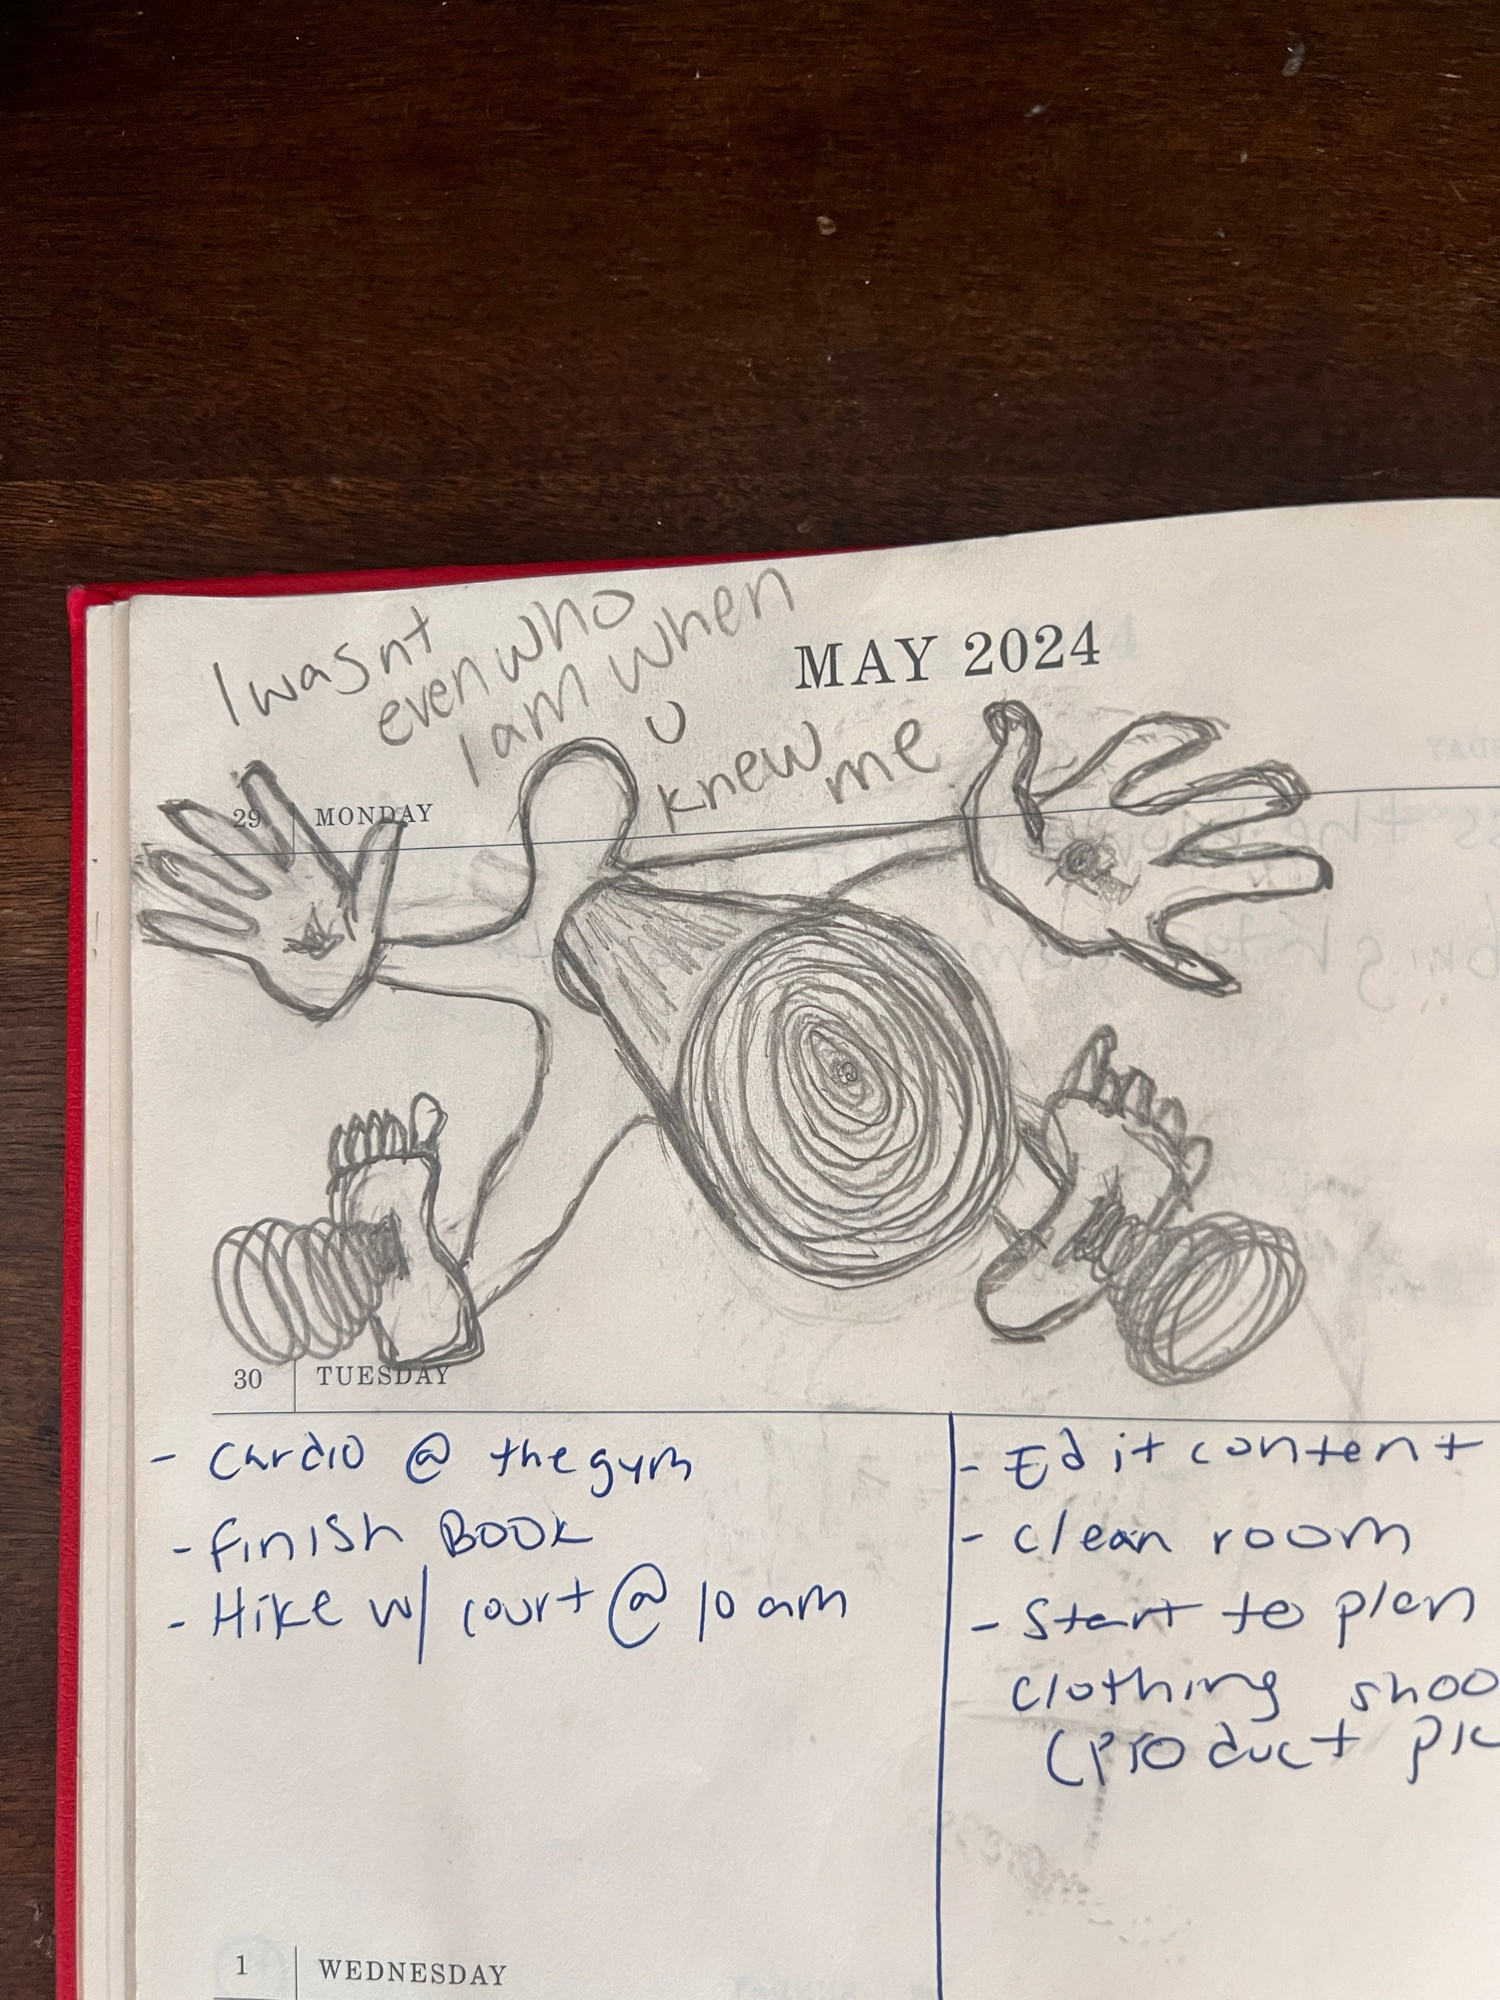 I wasnt
even who
I am when
u
knew me
MAY 2024
29 MONDAY
30 TUESDAY
- Cardio @ the gym
- Finish BOOK
- Hike w/ court @ 10 am
- Edit content
- clean room
- Start to plan
clothing shoo
(product pic
1 WEDNESDAY